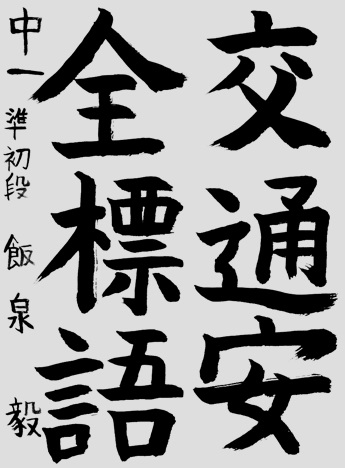 交通安
全標語
中一 準初段 飯泉 毅